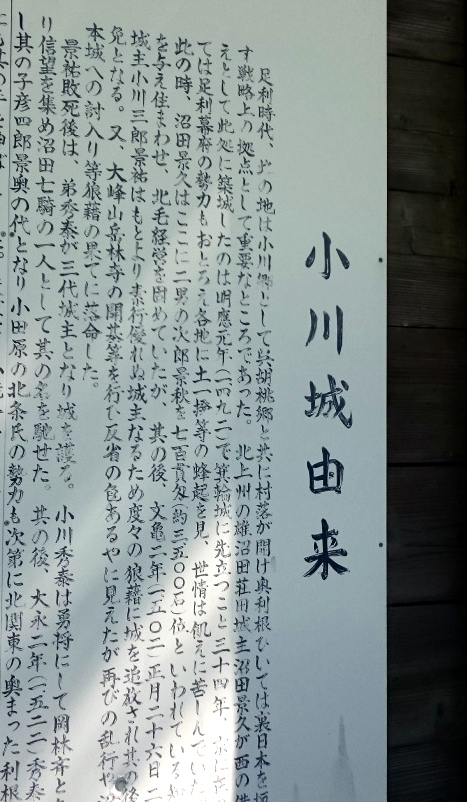 小川城由来
足利時代、此の地は小川郷として呉胡桃郷と共に村落が開け奥利根ひいては裏日本を
す戦略上の拠点として重要なところであった。北上州の雄沼田荘田城主沼田景久が西の
えとして、此処に築城したのは明應元年(一四九二)で箕輪城に先立つこと三十四年
ては足利幕府の勢力もおとろえ各地に土一揆等の蜂起を見、世情は飢えに苦しんでいた
此の時、沼田景久はここに二男の次郎景秋を七百貫匁(約三五〇〇石)位といわれている
を与え住まわせ、北毛経営を固めていたが、其の後、文亀二年(一五〇二)正月二十六日二
城主小川三郎景祐はもとより素行優れぬ城主なるため度々の狼藉に城を追放され其の後
免となる。又、大峰山岳林寺の開基等を行い反省の色あるやに見えたが再びの乱行や
本城への討入り等狼藉の果てに落命した。
景祐敗死後は、弟秀泰が三代城主となり城を護る。小川秀泰は勇将にして岡林斉と
り信望を集め沼田七騎の一人として其の名を馳せた。其の後、大永二年(一五二二)秀泰
し其の子彦四郎景奥の代となり小田原の北条氏の勢力も次第に北関東の奥まった利根